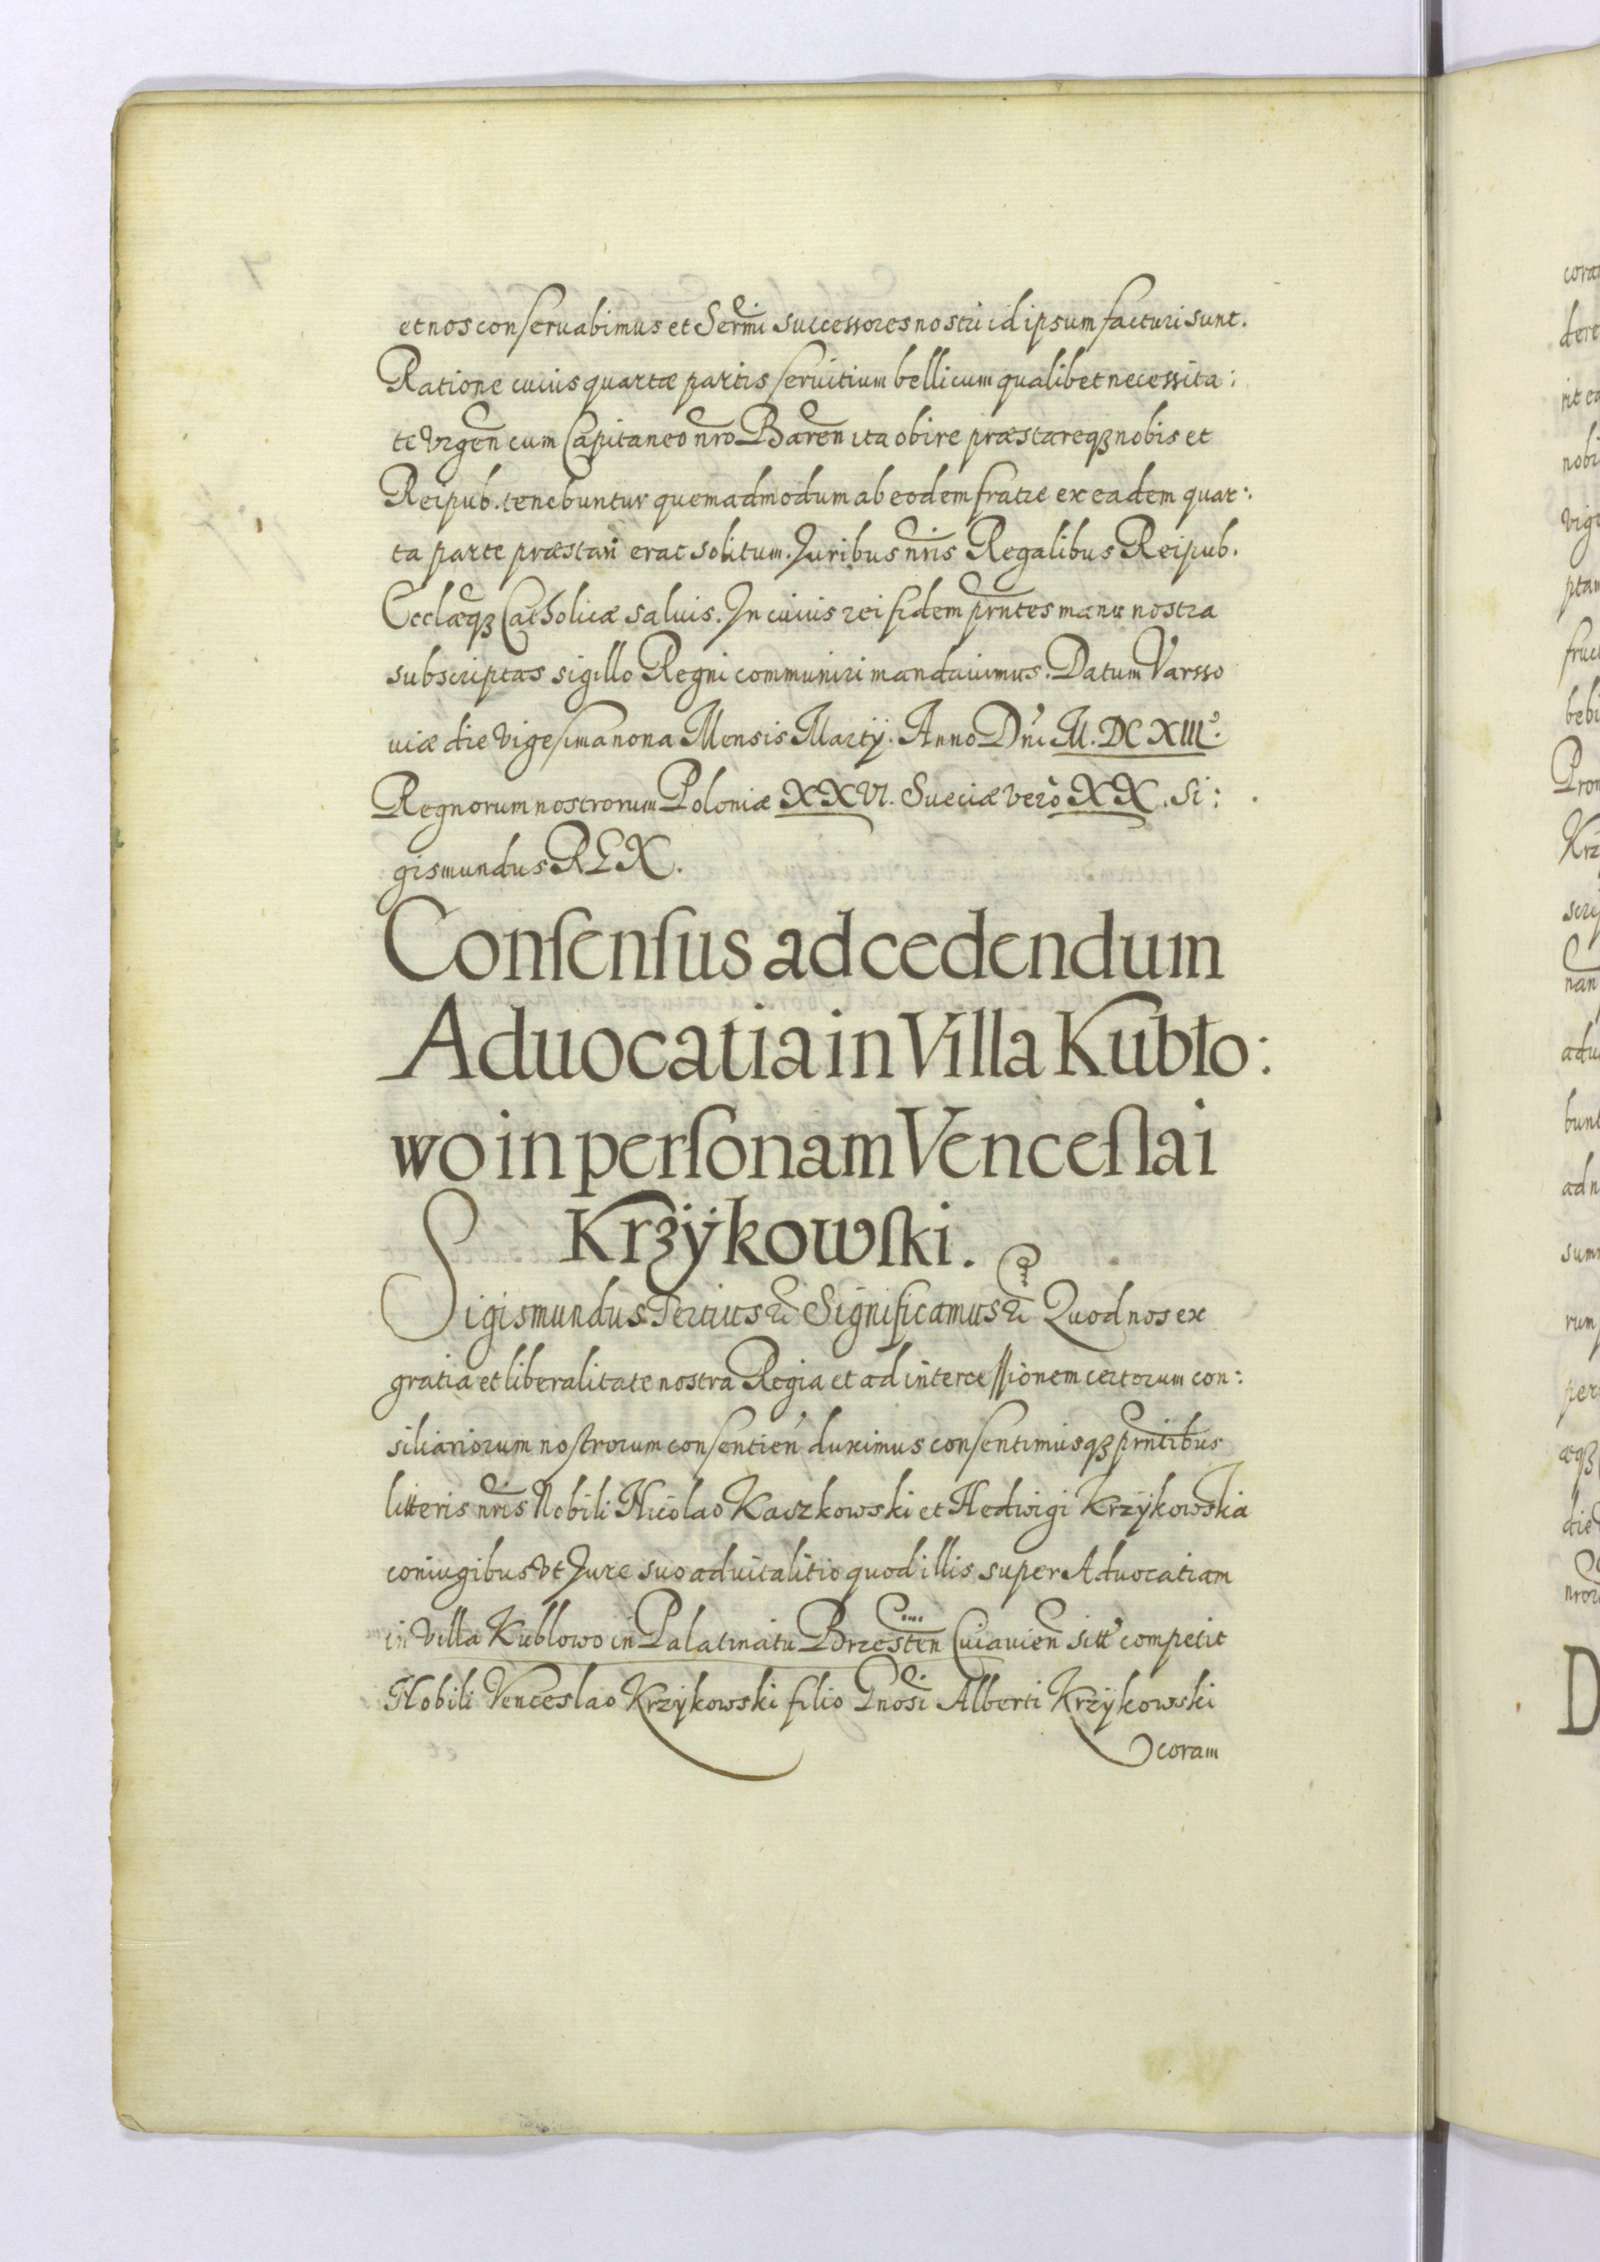 et nos conseruabimus et Sermi successores nostri id ipsum facturi sunt.
Ratione cuius quartæ partis seruitium bellicum qualibet necessita:
te vrgen cum Capitaneo nro Baren ita obire præstareqꝫ nobis et
Reipub. tenebuntur quemadmodum ab eodem fratre ex eadem quar:
ta parte præstari erat solitum. Juribus nris Regalibus Reipub.
Ecclæqꝫ Catholicæ saluis. In cuius rei fidem prntes manu nostra
subscriptas sigillo Regni communiri mandauimus. Datum Varsso
uiæ die vigesima nona Mensis Martij. Anno Dni M. DC XIII°.
Regnorum nostrorum Poloniæ XXVI. Sueciæ verò XX. Si:
gismundus REX.
Conſenſus ad cedendum
Aduocatia in Villa Kubło:
wo in perſonam Venceſlai
Krzÿkowſki.
Sigismundus Tertius &c Significamus &c Quod nos ex
gratia et liberalitate nostra Regia et ad intercessionem certorum con:
siliariorum nostrorum consentien duximus consentimusqꝫ prntibus
litteris nris Nobili Nicolao Kaszkowski et Hedwigi Krzÿkowskia
coniugibus vt Jure suo aduitalitio quod illis super Aduocatiam
in villa Kublowo in Palatinatu Brzesten Cuiauien sitt competit
Nobili Venceslao Krzÿkowski filio Gnosi Alberti Krzÿkowski
coram